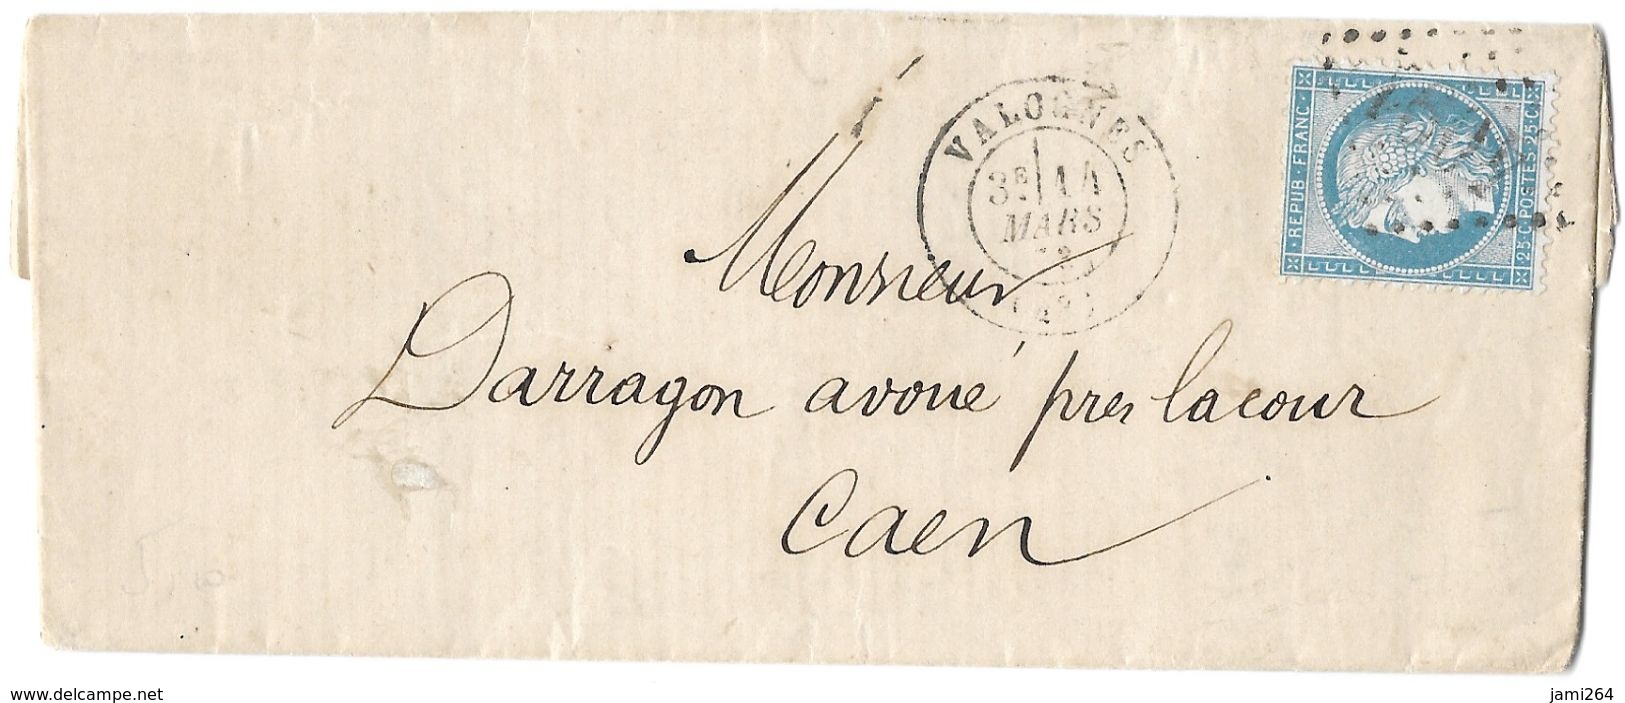 VALOGNES
3E 14
MARS
REPUB · FRANC ·
25 · C · POSTES 25 · C
Monsieur
Darragon avoué près lacour
Caen
www.delcampe.net
jami264